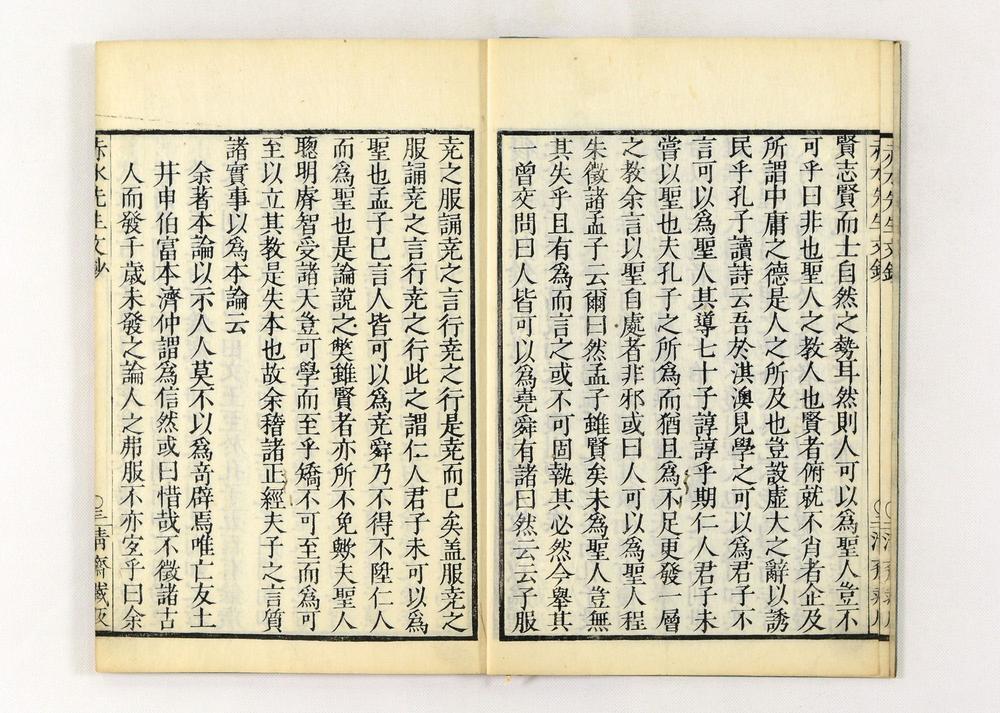 賢志賢而士自然之勢耳然則人可以爲聖人豈不
可乎曰非也聖人之教人也賢者俯就不肖者企及
所謂中庸之德是人之所及也豈設虛大之辭以誘
民乎孔子讀詩云吾於淇澳見學之可以爲君子不
言可以爲聖人其導七十子諄諄乎期仁人君子未
嘗以聖也夫孔子之所爲而猶且爲不足更發一層
之教余言以聖自處者非邪或曰人可以爲聖人程
朱徵諸孟子云爾曰然孟子雖賢矣未爲聖人豈無
其失乎且有爲而言之或不可固執其必然今舉其
一曾交問曰人皆可以爲堯舜有諸曰然云云子服
尭之服誦尭之言行尭之行是尭而已矣盖服尭之
服誦尭之言行尭之行此之謂仁人君子未可以爲
聖也孟子已言人皆可以爲尭舜乃不得不陞仁人
而爲聖也是論說之獘雖賢者亦所不免歟夫聖人
聰明睿智受諸天豈可學而至乎矯不可至而爲可
至以立其教是失本也故余稽諸正經夫子之言質
諸實事以爲本論云
余著本論以示人人莫不以爲奇辟焉唯亡友土
井申伯富本濟仲謂爲信然或曰惜哉不徵諸古
人而發千歲未發之論人之弗服不亦宐乎曰余
赤水先生文鈔
〇三靜齋藏板